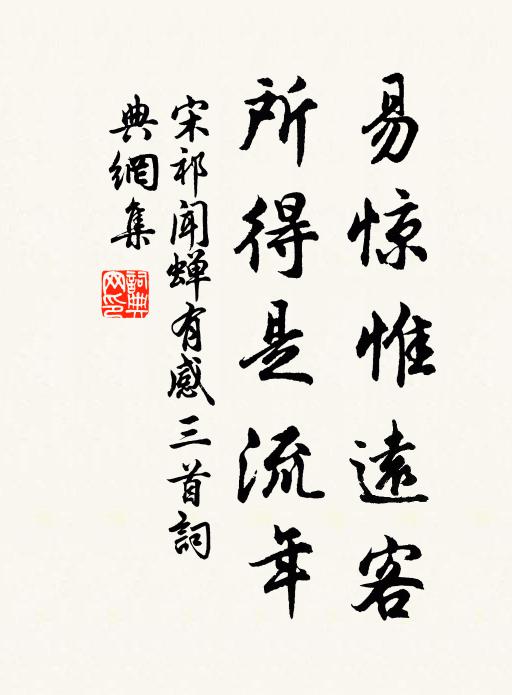 易惊惟遠客
所得是流年
宋祁闻蝉有感三首詞
典網集
詞典
网印